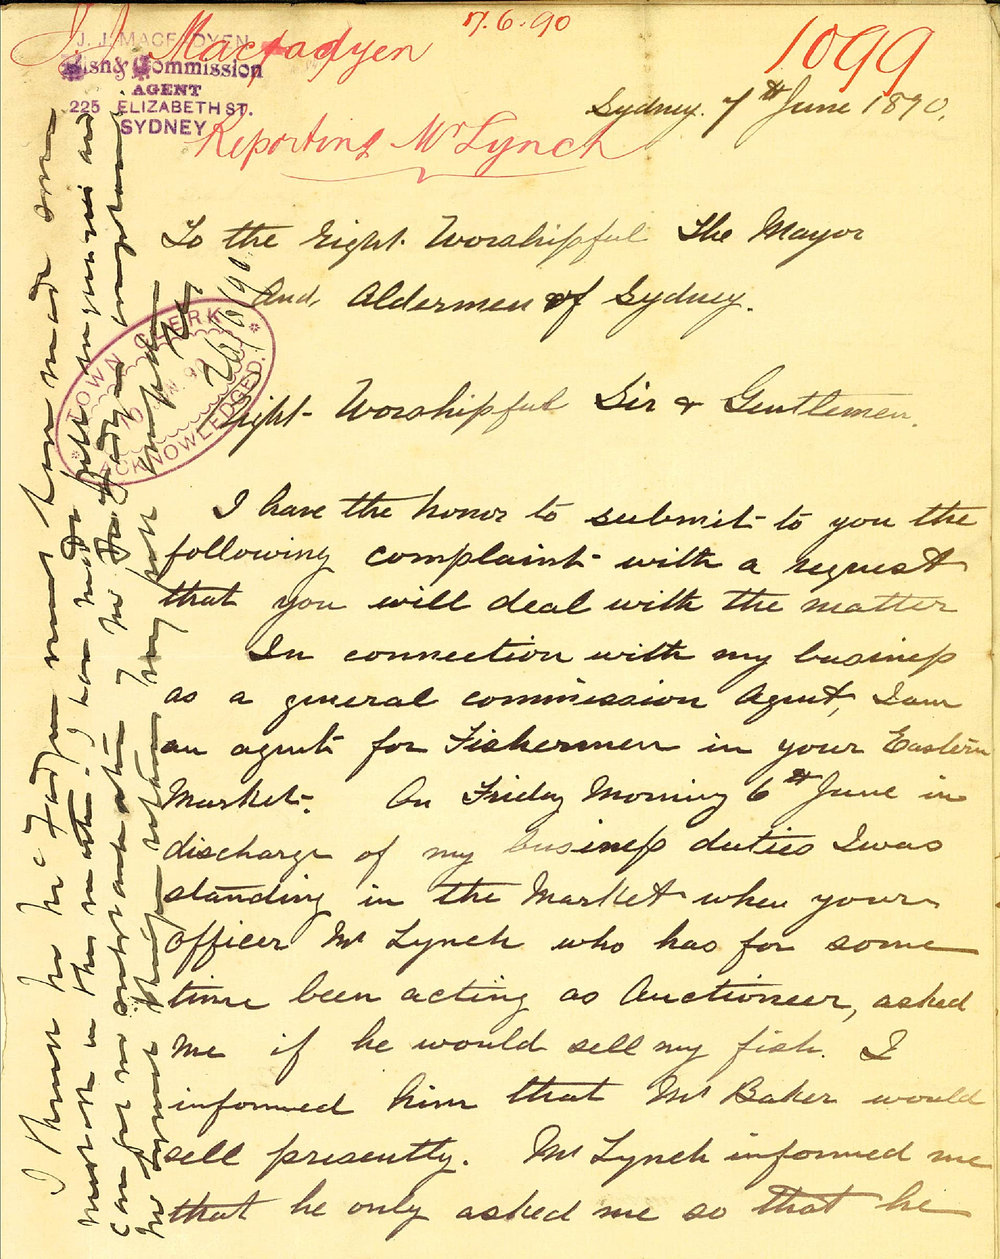 7.6.90
1099
J. J. Macfadyen
J. J. MACFADYEN
Fish & Commission
AGENT
225 ELIZABETH ST.
SYDNEY
Reporting Mr Lynch
Sydney. 7th June 1890.
To the Right Worshipful The Mayor
And, Aldermen of Sydney.
Right Worshipful Sir & Gentlemen.
TOWN CLERK
ACKNOWLEDGED.
I have the honor to submit to you the
following complaint with a request
that you will deal with the matter
In connection with my business
as a general commission Agent, I am
an agent for Fishermen in your Eastern
Market. On Friday Morning 6th June in
discharge of my business duties I was
standing in the Market when your
officer Mr Lynch who has for some
time been acting as Auctioneer, asked
me if he would sell my fish. I
informed him that Mr Baker would
sell presently. Mr Lynch informed me
that he only asked me so that he
I think he Mc Fadyen must have made some
mistake in this matter. I have made full inquiries and
can get no
26/6/90